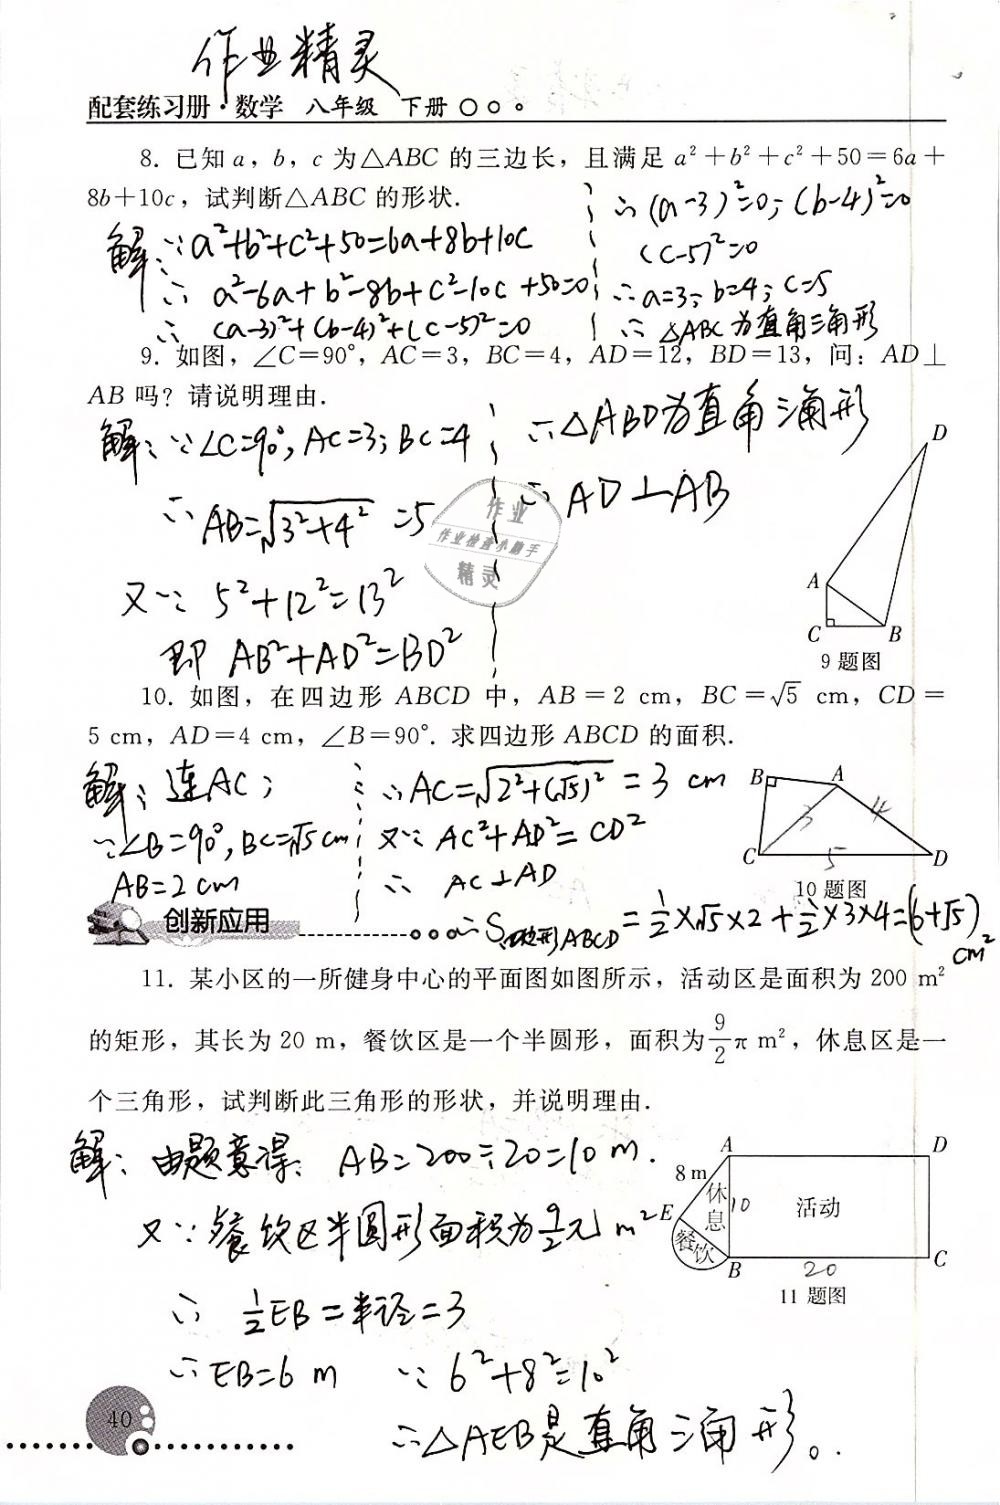 作业精灵
配套练习册·数学 八年级 下册
8. 已知 a，b，c 为△ABC 的三边长，且满足 a²＋b²＋c²＋50＝6a＋
8b＋10c，试判断△ABC 的形状.
解：∵a²+b²+c²+50=6a+8b+10c
∴ a²-6a+b²-8b+c²-10c+50=0
∴ (a-3)²+(b-4)²+(c-5)²=0
∴ (a-3)²=0；(b-4)²=0
(c-5)²=0
∴a=3；b=4；c=5
∴ △ABC为直角三角形
9. 如图，∠C＝90°，AC＝3，BC＝4，AD＝12，BD＝13，问：AD⊥
AB 吗？请说明理由.
解：∵∠C=90°，AC=3；BC=4
∴ AB=√3²+4² =5
又∵ 5²+12²=13²
即 AB²+AD²=BD²
∴△ABD为直角三角形
∴ AD⊥AB
作业
作业检查小助手
精灵
D
A
C
B
9 题图
10. 如图，在四边形 ABCD 中，AB＝2 cm，BC＝√5 cm，CD＝
5 cm，AD＝4 cm，∠B＝90°. 求四边形 ABCD 的面积.
解：连AC；
∵∠B=90°，BC=√5cm
AB=2cm
∴AC=√2²+(√5)² =3 cm
又∵ AC²+AD²=CD²
∴ AC⊥AD
∴S四边形ABCD=½×√5×2+½×3×4=(6+√5)
cm²
B
A
3
4
C
5
D
10 题图
创新应用
11. 某小区的一所健身中心的平面图如图所示，活动区是面积为 200 m²
的矩形，其长为 20 m，餐饮区是一个半圆形，面积为9/2π m²，休息区是一
个三角形，试判断此三角形的形状，并说明理由.
解：由题意得：AB=200÷20=10 m.
又∵餐饮区半圆形面积为9/2π m²
∴ ½EB=半径=3
∴EB=6 m ∵ 6²+8²=10²
∴△AEB是直角三角形。
A
D
8 m
休息
10
活动
E
餐饮
B
20
C
11 题图
40